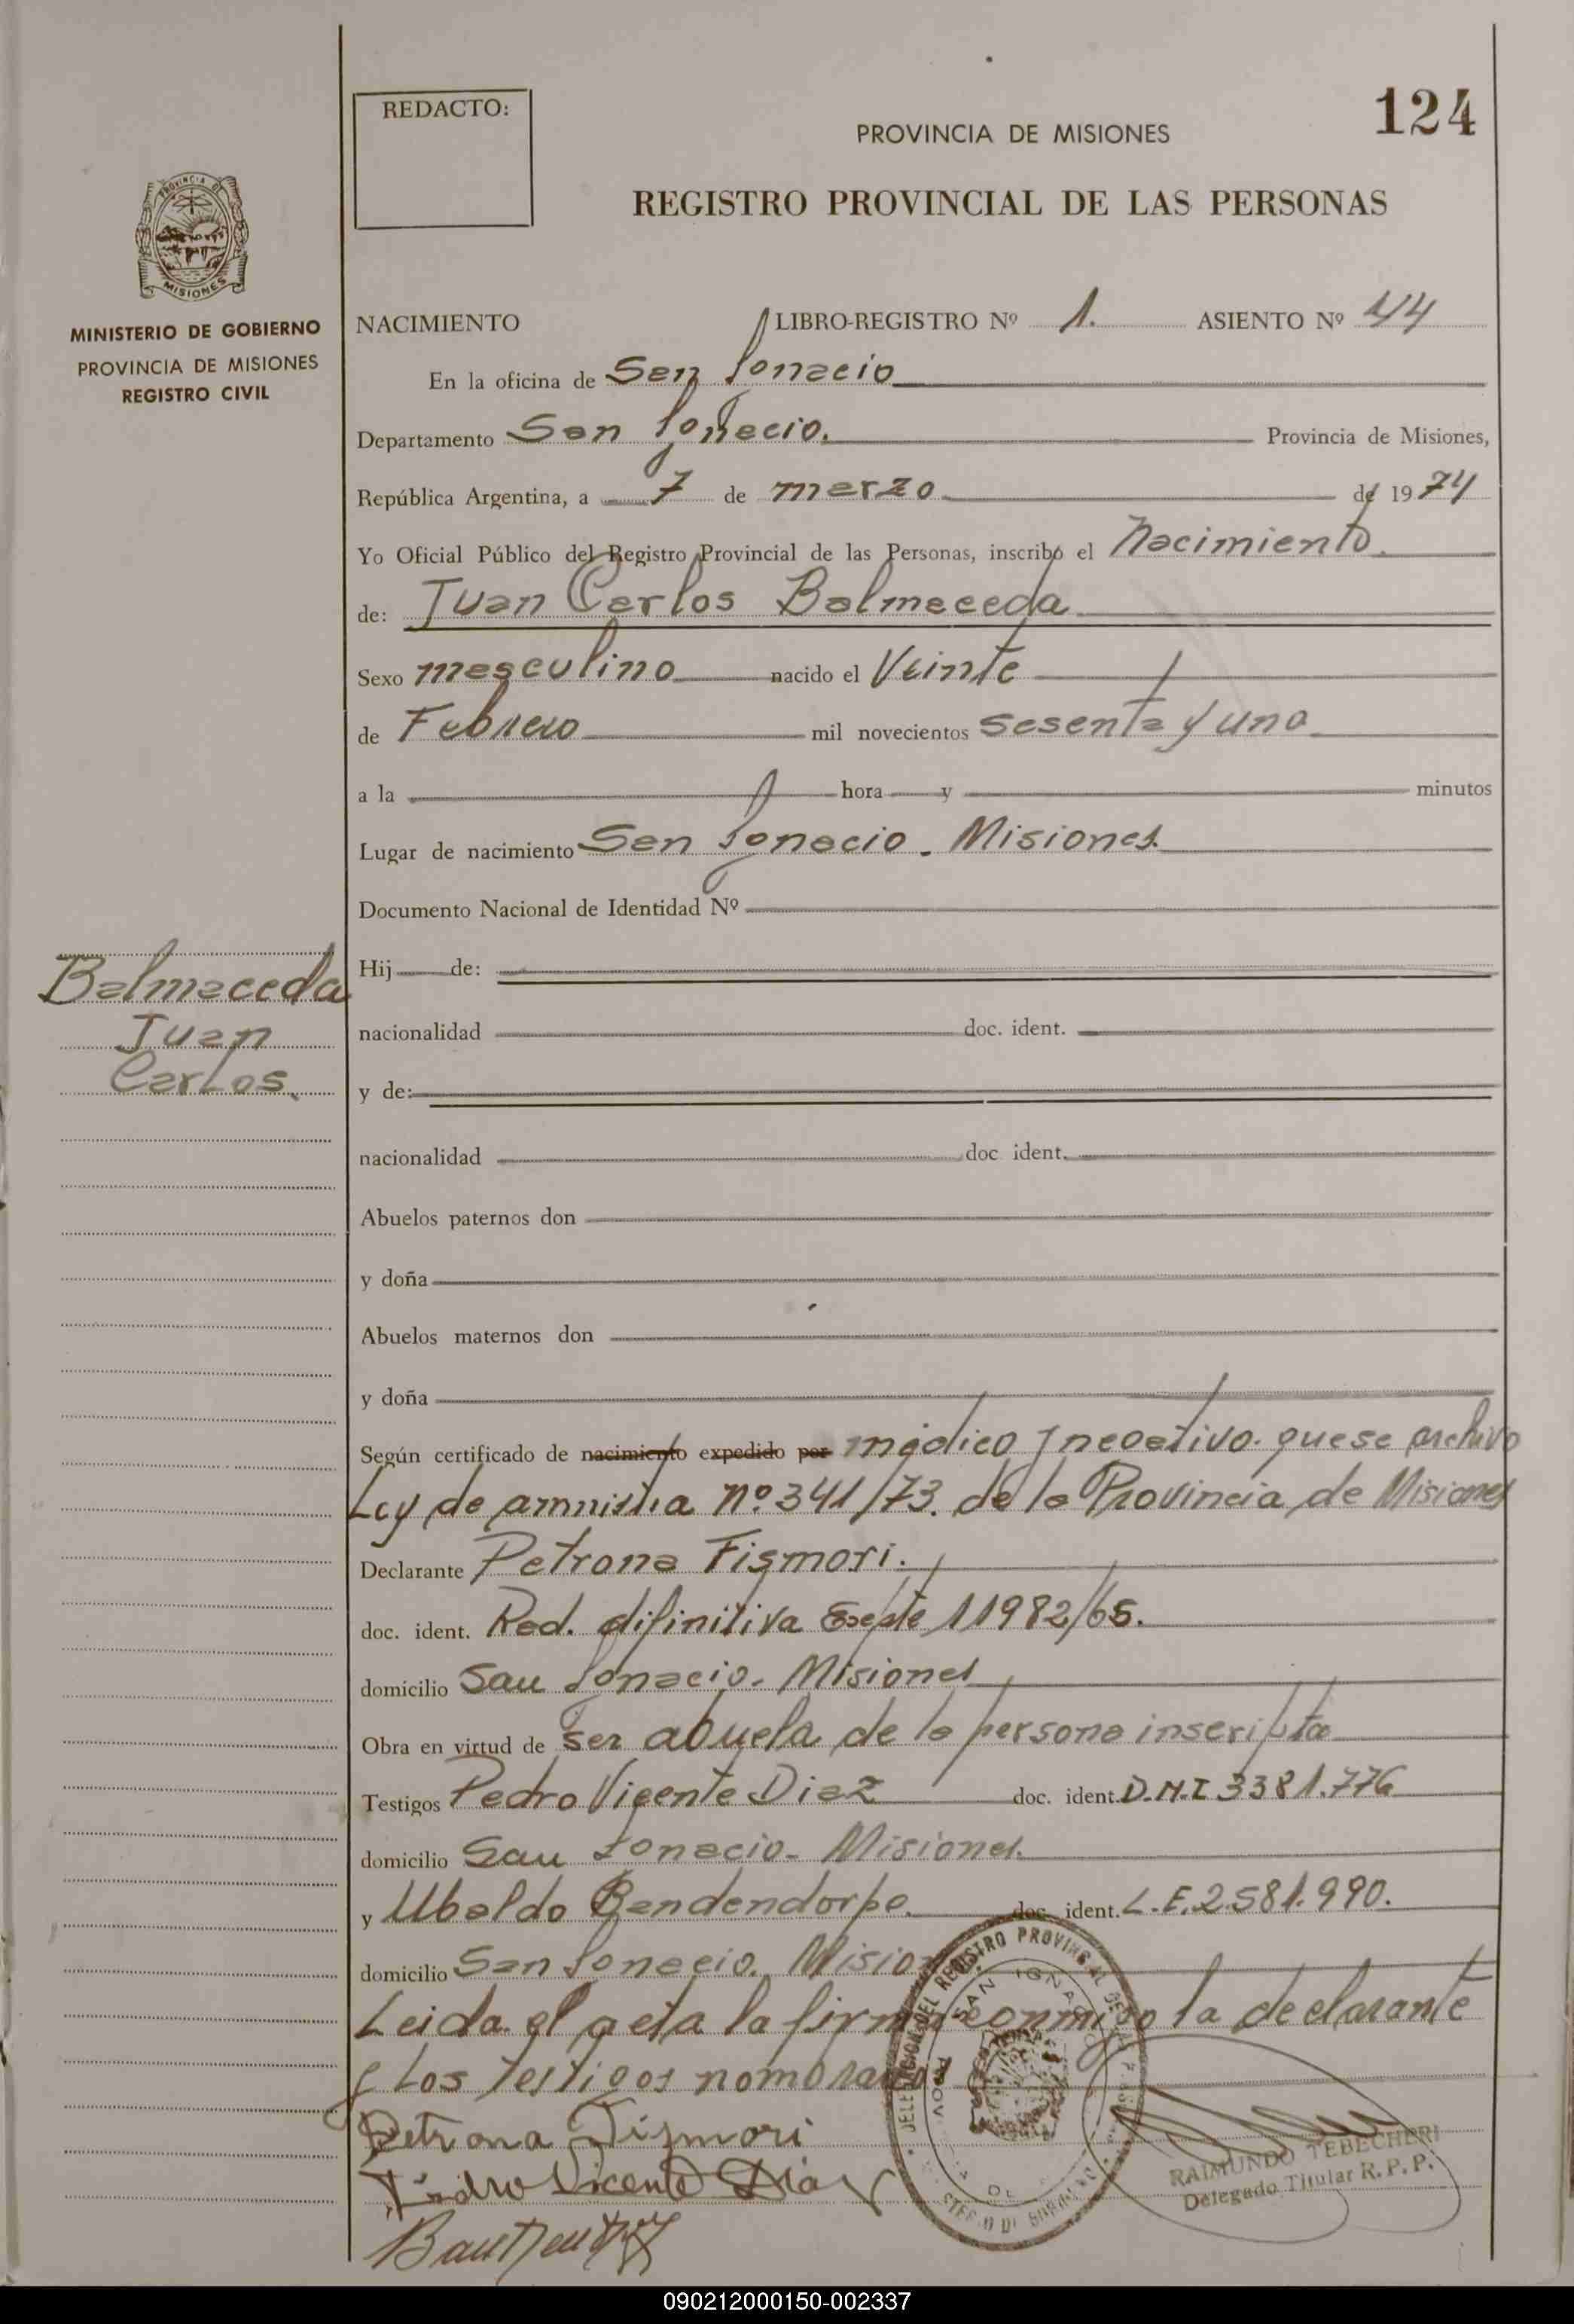 REDACTO:
124
PROVINCIA DE MISIONES
REGISTRO PROVINCIAL DE LAS PERSONAS
PROVINCIA DE
MISIONES
MINISTERIO DE GOBIERNO
PROVINCIA DE MISIONES
REGISTRO CIVIL
NACIMIENTO LIBRO-REGISTRO Nº 1. ASIENTO Nº 44
En la oficina de San Ignacio
Departamento San Ignacio. Provincia de Misiones,
República Argentina, a 7 de marzo de 1974
Yo Oficial Público del Registro Provincial de las Personas, inscribo el Nacimiento
de: Juan Carlos Balmaceda
Sexo masculino nacido el Veinte
de Febrero mil novecientos sesenta y uno
a la hora y minutos
Lugar de nacimiento San Ignacio - Misiones.
Documento Nacional de Identidad Nº
Balmaceda
Juan
Carlos
Hij de:
nacionalidad doc. ident.
y de:
nacionalidad doc ident.
Abuelos paternos don
y doña
Abuelos maternos don
y doña
Según certificado de nacimiento expedido por médico y negativo. que se archivo
Ley de amnistia nº 341/73. de la Provincia de Misiones
Declarante Petrona Fismori.
doc. ident. Rad. difinitiva Expte 11982/65.
domicilio San Ignacio - Misiones
Obra en virtud de ser abuela de la persona inscripta
Testigos Pedro Vicente Diaz doc. ident. D.N.I 3381.776
domicilio San Ignacio - Misiones.
y Ubaldo Bendendorpe. doc. ident. L.E. 2.581.990.
domicilio San Ignacio. Misiones
Leida el acta la firma conmigo la declarante
y los testigos nombrados
Petrona Fismori
Pedro Vicente Diaz
DELEGACION DEL REGISTRO PROVINCIAL DE LAS PERSONAS
SAN IGNACIO
RAIMUNDO TEBECHERI
Delegado Titular R. P. P.
090212000150-002337